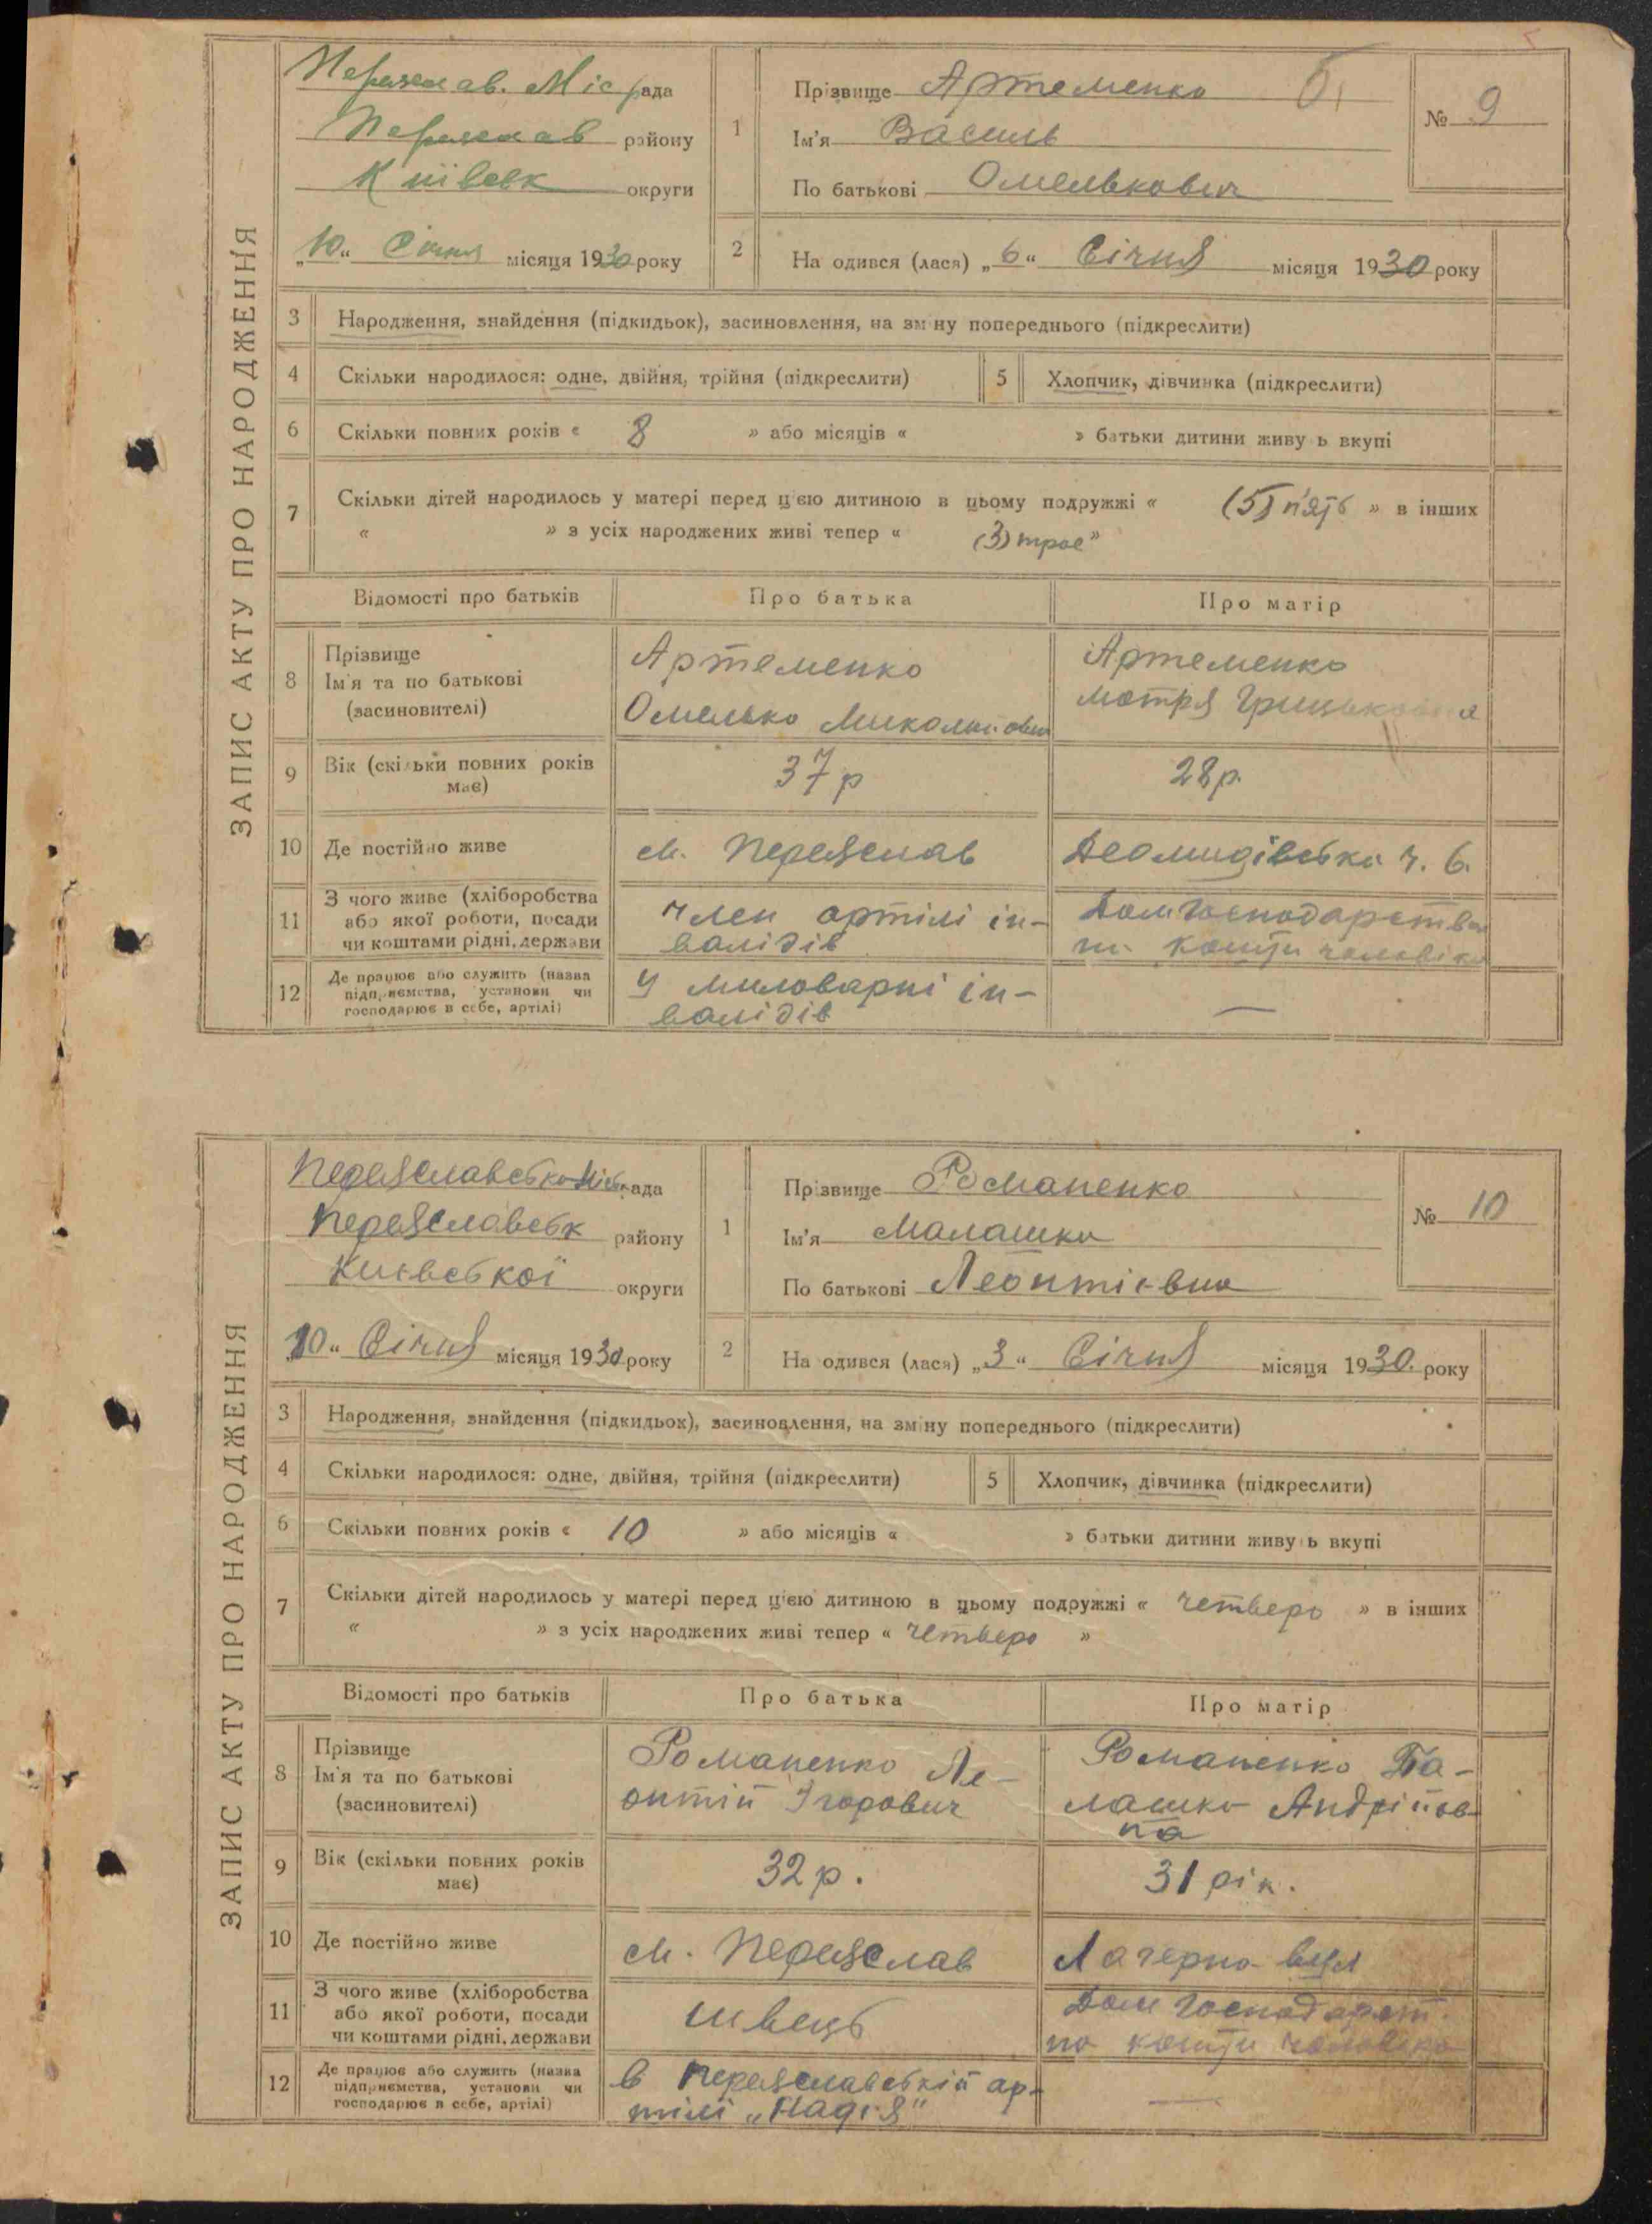 ЗАПИС АКТУ ПРО НАРОДЖЕННЯ
Переяслав. Міс рада
Переяслав району
Київськ округи
„10“ Січня місяця 1930 року
1
Прізвище Артеменко
Ім'я Василь
По батькові Омелькович
№ 9
2
На одився (лася) „6“ Січня місяця 1930 року
3 Народження, знайдення (підкидьок), засиновлення, на зміну попереднього (підкреслити)
4 Скільки народилося: одне, двійня, трійня (підкреслити) 5 Хлопчик, дівчинка (підкреслити)
6 Скільки повних років « 8 » або місяців « » батьки дитини живу ь вкупі
7 Скільки дітей народилось у матері перед цією дитиною в цьому подружжі « (5) п'ять » в інших
« » з усіх народжених живі тепер « (3) троє »
Відомості про батьків Про батька Про матір
8 Прізвище
Ім'я та по батькові
(засиновителі)
Артеменко
Омелько Миколайович
Артеменко
Мотря Грицьковна
9 Вік (скільки повних років
має)
37 р
28 р.
10 Де постійно живе
м. Переяслав
ч. 6.
11 З чого живе (хліборобства
або якої роботи, посади
чи коштами рідні, держави
член артілі ін-
валідів
Домгосподарства
кошти чоловіка
12 Де працює або служить (назва
підприємства, установи чи
господарює в себе, артілі)
У миловарні ін-
валідів
—
ЗАПИС АКТУ ПРО НАРОДЖЕННЯ
Переяславська Міськрада
Переяславськ району
Києвської округи
„10“ Січня місяця 1930 року
1
Прізвище Романенко
Ім'я Малашка
По батькові Леонтієвна
№ 10
2
На одився (лася) „3“ Січня місяця 1930 року
3 Народження, знайдення (підкидьок), засиновлення, на зміну попереднього (підкреслити)
4 Скільки народилося: одне, двійня, трійня (підкреслити) 5 Хлопчик, дівчинка (підкреслити)
6 Скільки повних років « 10 » або місяців « » батьки дитини живу ь вкупі
7 Скільки дітей народилось у матері перед цією дитиною в цьому подружжі « четверо » в інших
« » з усіх народжених живі тепер « четверо »
Відомості про батьків Про батька Про матір
8 Прізвище
Ім'я та по батькові
(засиновителі)
Романенко Ле-
онтій Ігорович
Романенко Па-
лашка Андріїов-
на
9 Вік (скільки повних років
має)
32 р.
31 рік.
10 Де постійно живе
м. Переяслав
11 З чого живе (хліборобства
або якої роботи, посади
чи коштами рідні, держави
швець
Дом господарст.
на кошти чоловіка
12 Де працює або служить (назва
підприємства, установи чи
господарює в себе, артілі)
в Переяславській ар-
тілі „Надія“
—